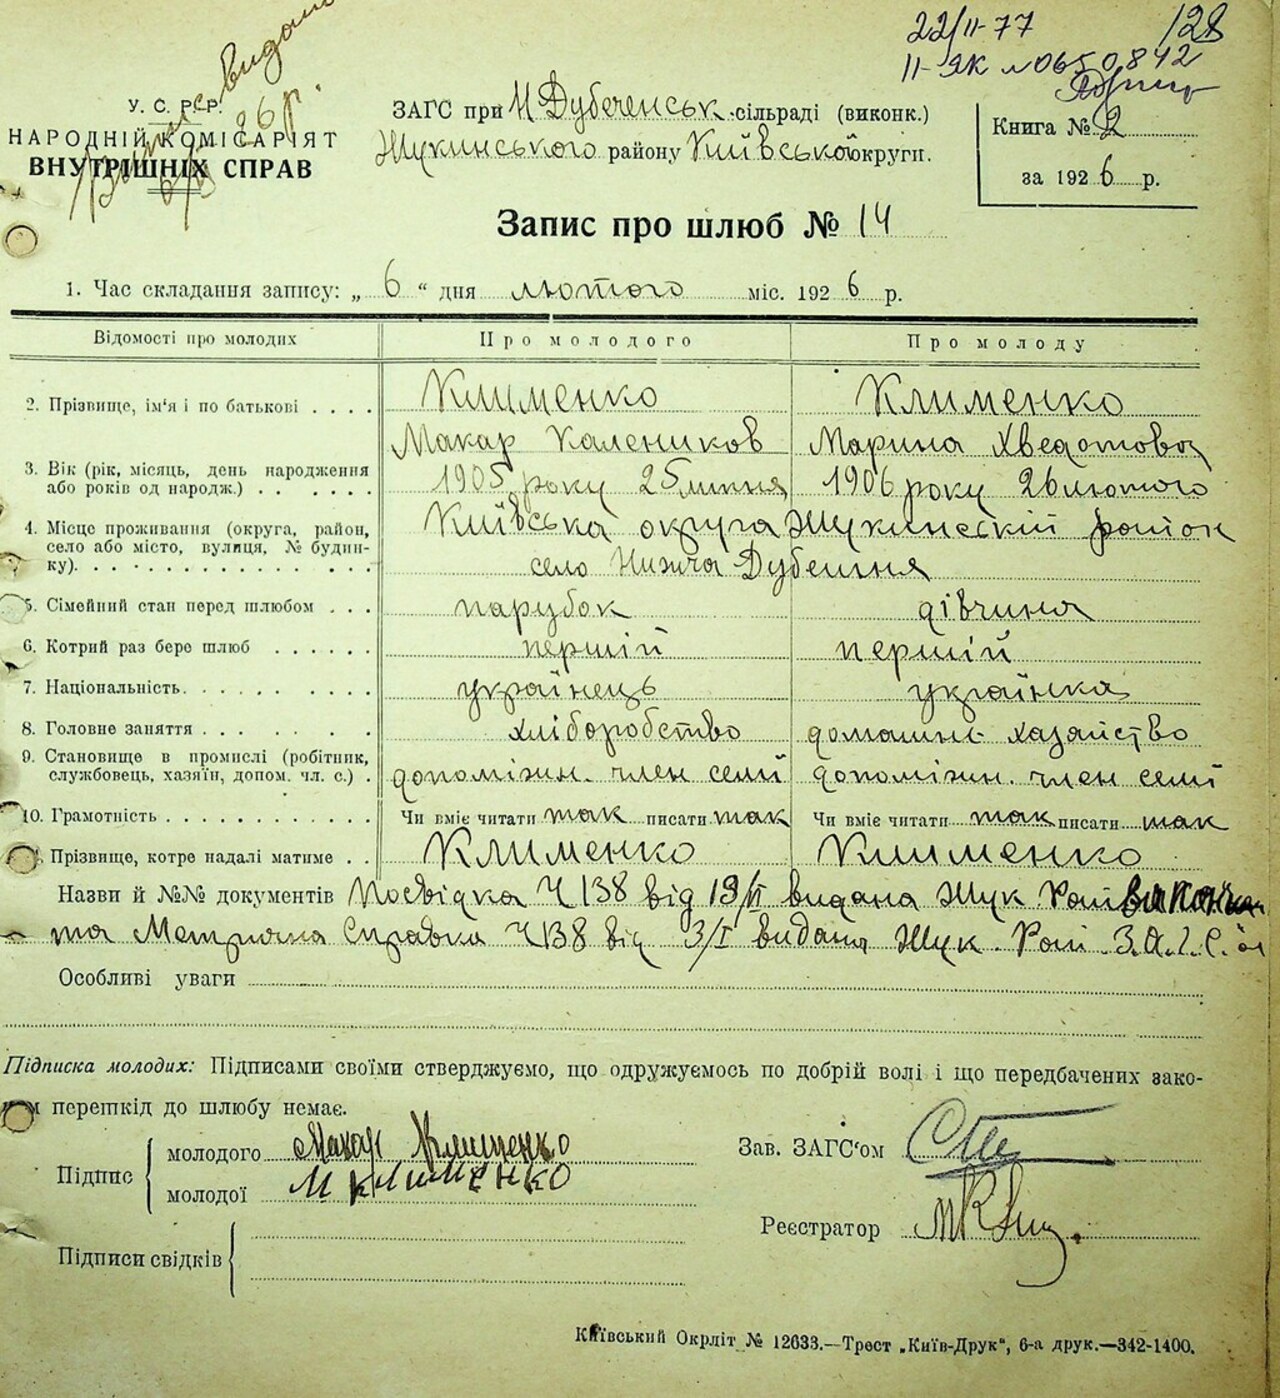 22/II-77 128
II-ЯК №0650842
видано
26 р.
У. С. Р. Р.
НАРОДНІЙ КОМІСАРІЯТ
ВНУТРІШНІХ СПРАВ
ЗАГС при Н Дубеченськ. сільраді (виконк.)
Жукинського району Київської округи.
Книга № 2
за 1926 р.
Запис про шлюб № 14
1. Час складання запису: „ 6 “ дня лютого міс. 1926 р.
Відомості про молодих Про молодого Про молоду
2. Прізвище, ім'я і по батькові . . . . Клименко Клименко
Макар Калеников Марина Хведотова
3. Вік (рік, місяць, день народження або років од народж.) . . . . . . 1905 року 25 липня 1906 року 26 лютого
4. Місце проживання (округа, район, село або місто, вулиця, № будинку). Київська округа Жукинский район
село Нижча Дубешня
5. Сімейний стан перед шлюбом . . . парубок дівчина
6. Котрий раз бере шлюб . . . . . . перший перший
7. Національність. . . . . . . . . українець українка
8. Головне заняття . . . . . . . . хліборобство домашнє хазайство
9. Становище в промислі (робітник, службовець, хазяїн, допом. чл. с.) . допоміжн. член семї допоміжн. член семї
10. Грамотність . . . . . . . . . . . . Чи вміє читати так писати так Чи вміє читати так писати так
Прізвище, котре надалі матиме . . Клименко Клименко
Назви й №№ документів Посвідка Ч 138 від 19/II видана Жук Рай
та Метрична Справка Ч 138 від 3/I видана Жук. Рай З.А.Г.С.
Особливі уваги
Підписка молодих: Підписами своїми стверджуємо, що одружуємось по добрій волі і що передбачених зако-
ном перешкід до шлюбу немає.
Підпис
молодого Макар Клименко
молодої М Клименко
Зав. ЗАГС'ом
Реєстратор
Підписи свідків
Київський Окрліт № 12633.—Трест „Київ-Друк“, 6-а друк.—342-1400.